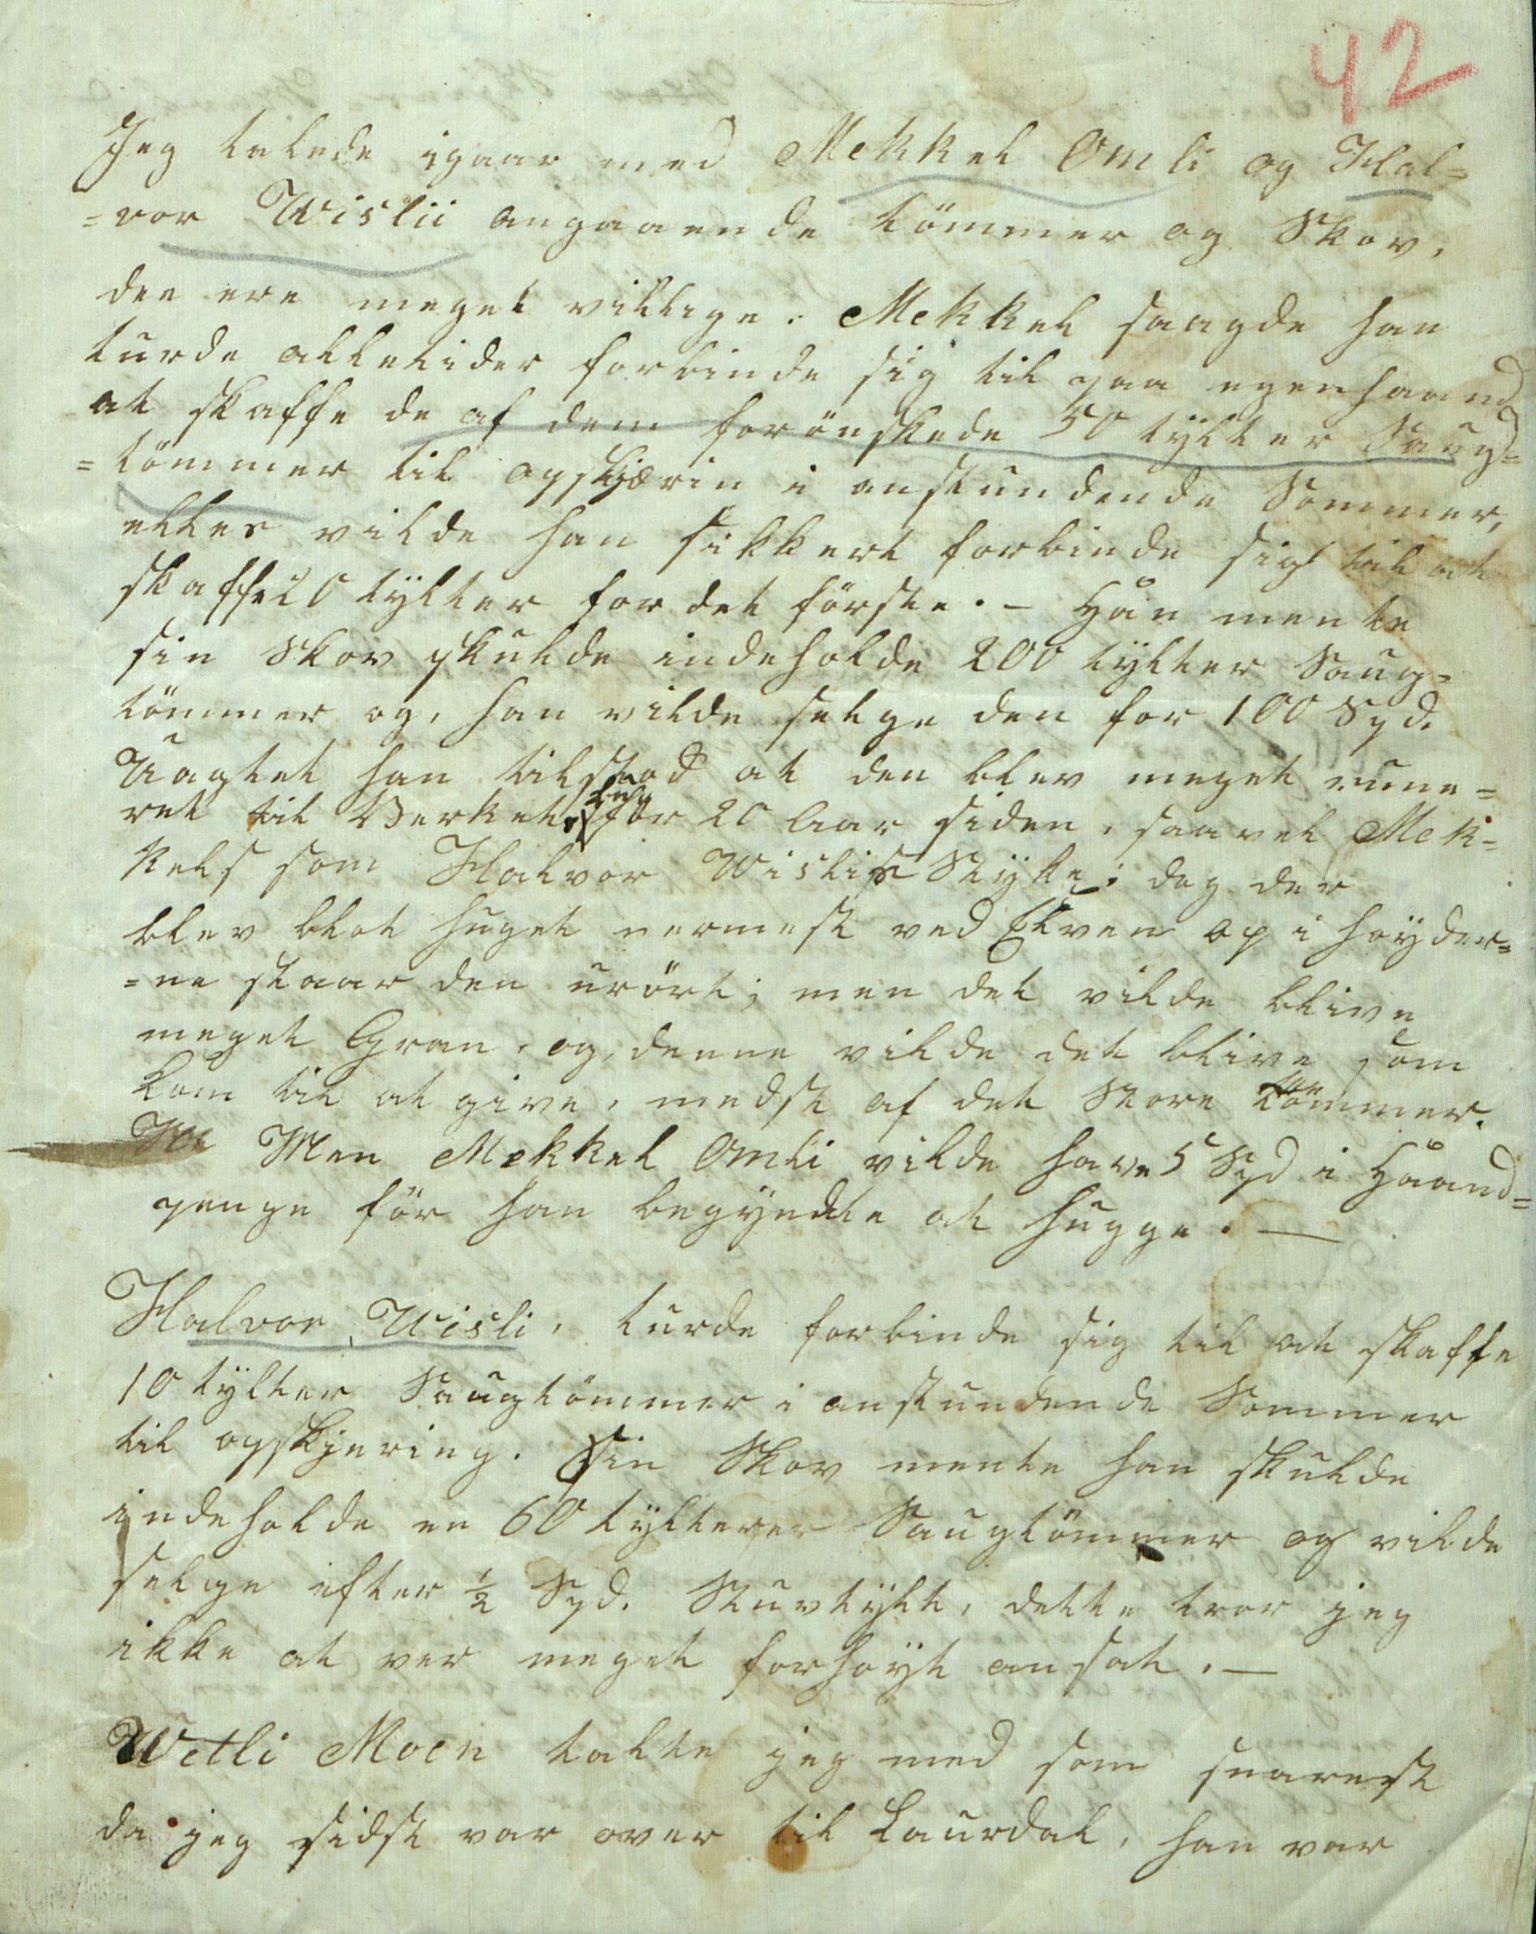 42
Jeg talede igaar med Mekkel Omli og Hal=
=vor Wislii angaaende tömmer og Skov,
dee ere meget villige. Mekkel saagde han
turde alletider forbinde sig til paa egenhaand
at skaffe de af dem forönskede 50 tylter Saug=
=tömmer til opskjærin i anstundende Sommer,
elles vilde han sikkert forbinde sig til at
skaffe 20 tylter for det förste. – Han mente
sin Skov skulde indeholde 200 tylter Saug=
tömmer og, han vilde selge den for 100 Spd.
Uagtet han tilstod at den blev meget rune=
ret til Verkets brug for 20 Aar siden, saavel Mek=
kels som Halvor Wislis Stykke; dog der
blev blot huget nermest ved Elven op i höyder=
=ne staar den urört; men det vilde blive
meget Gran, og, denne vilde det blive som
kom til at give, medst af det Store tömmer.
Men Mekkel Omli vilde have 5 Spd i Haand=
penge för han begyndte at hugge. —
Halvor Wisli, turde forbinde sig til at skaffe
10 tylter Saugtömmer i anstundende Sommer
til opskjering. Sin Skov mente han skulde
indeholde en 60 tylterer Saugtömmer og vilde
selge efter ½ Spd. Stuvtylt, dette tror jeg
ikke at ver meget forhöyt ansat. —
Wetli Moen talte jeg med som snarest
da jeg sidst var over til Laurdal, han var